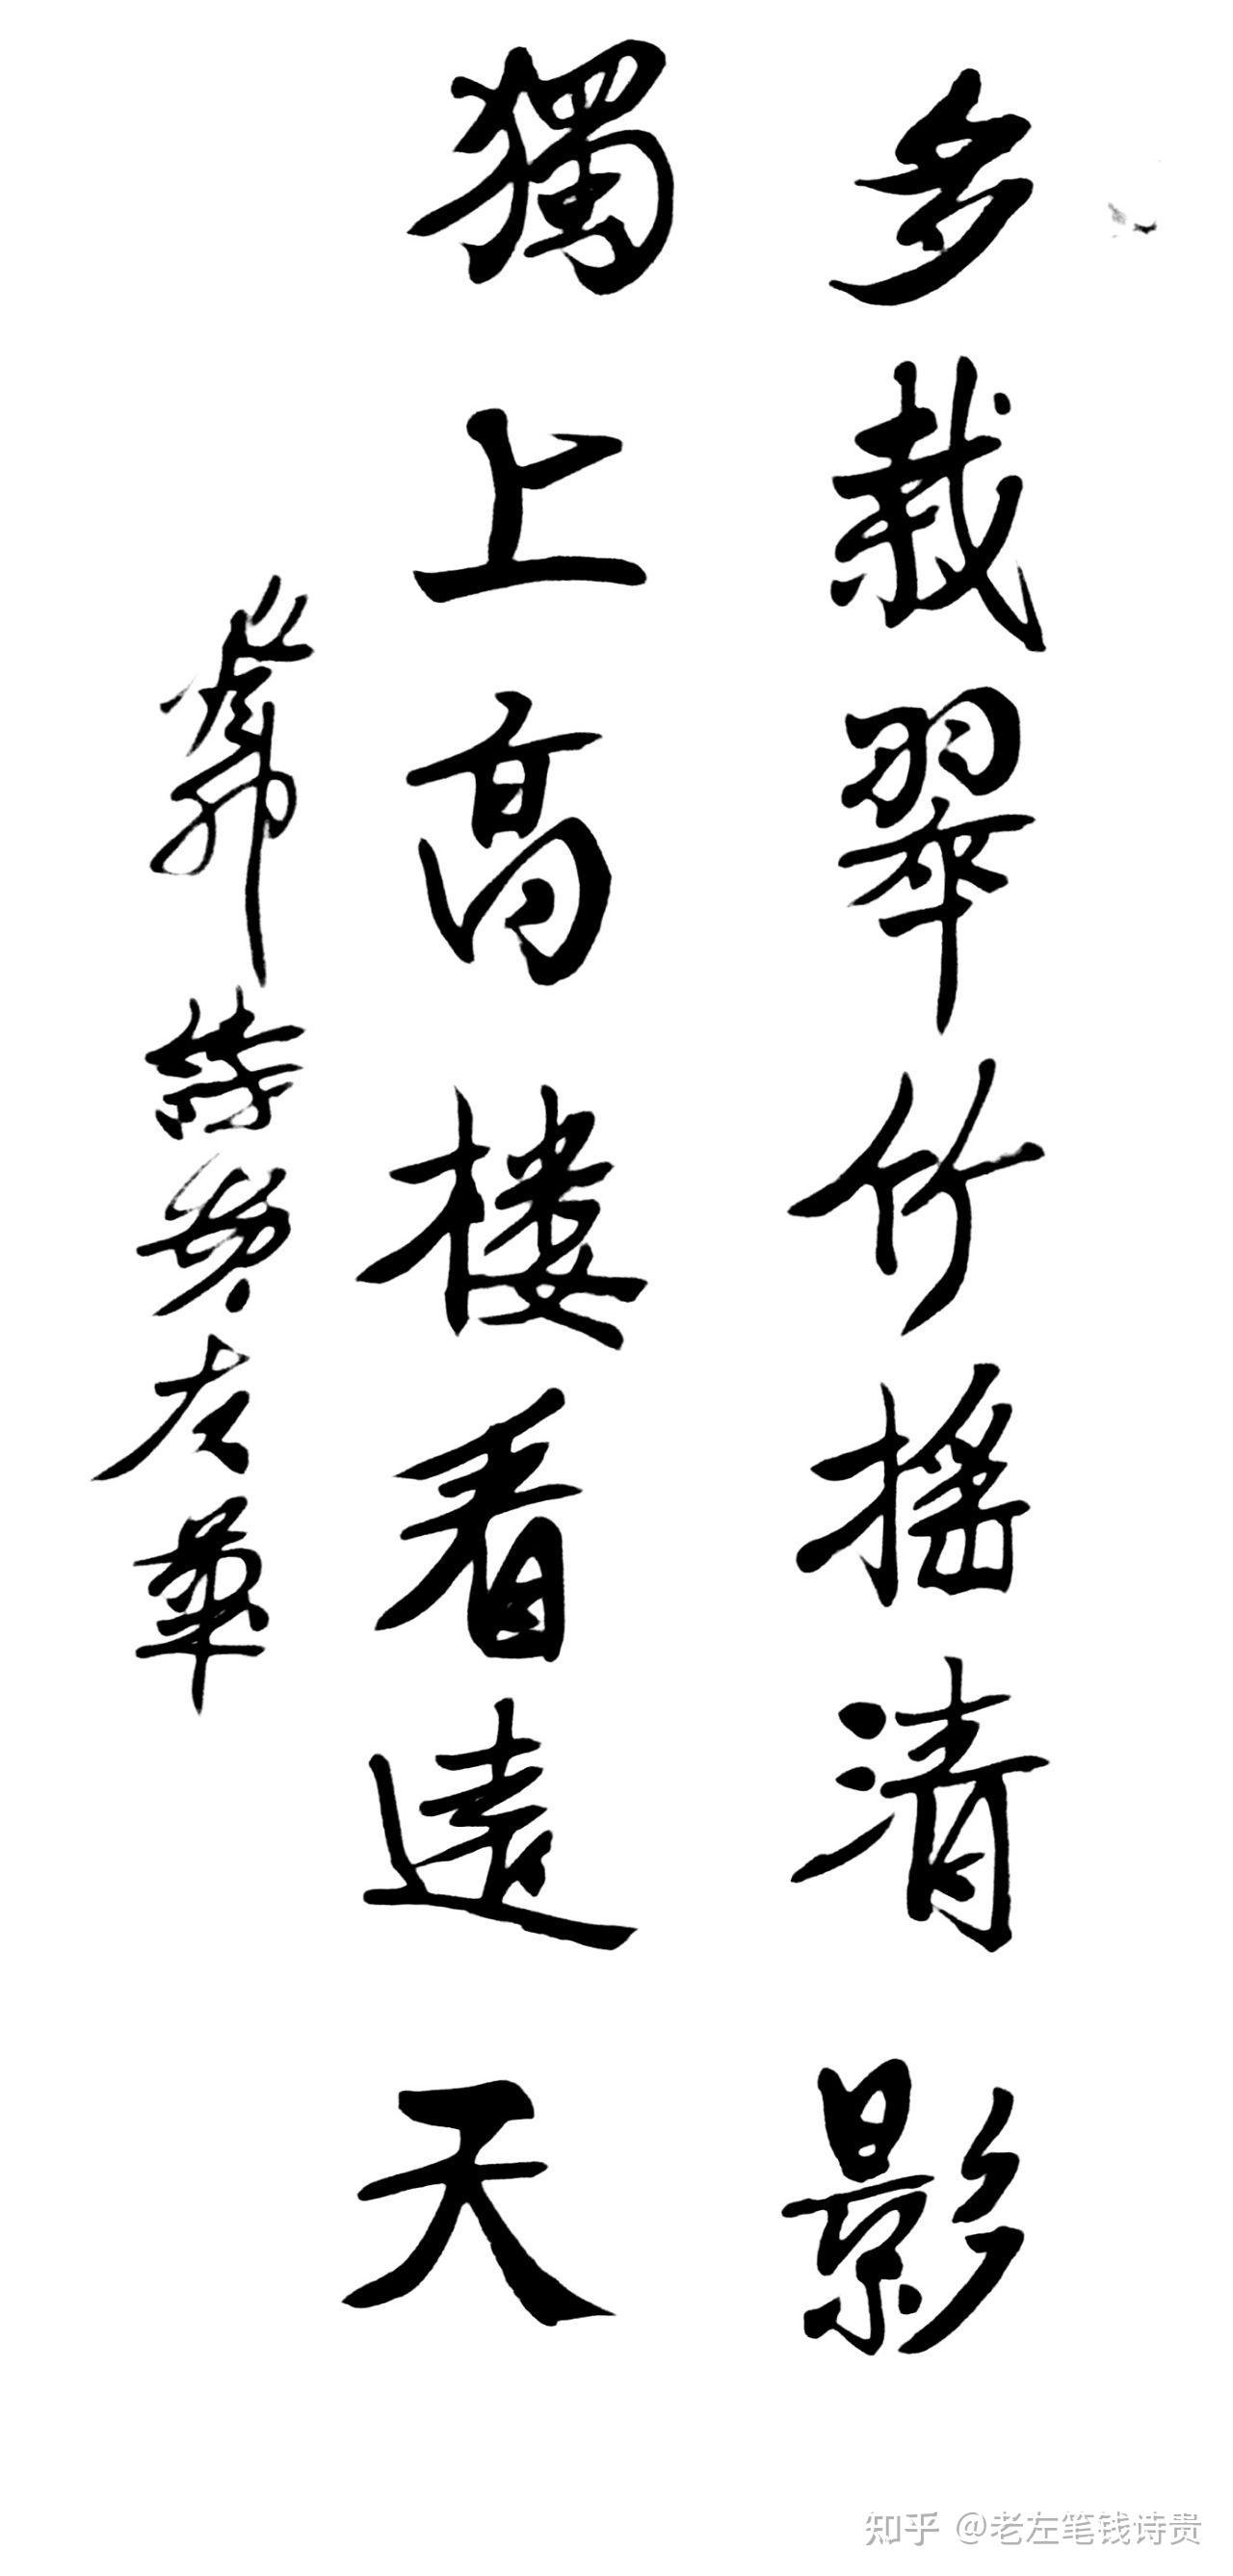 多栽翠竹摇清影
獨上高楼看遠天
癸卯詩□左華
知乎 @老左笔钱诗贵